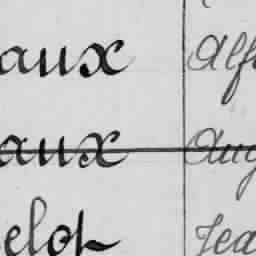 aux Alf
aux Aug
elot Jea